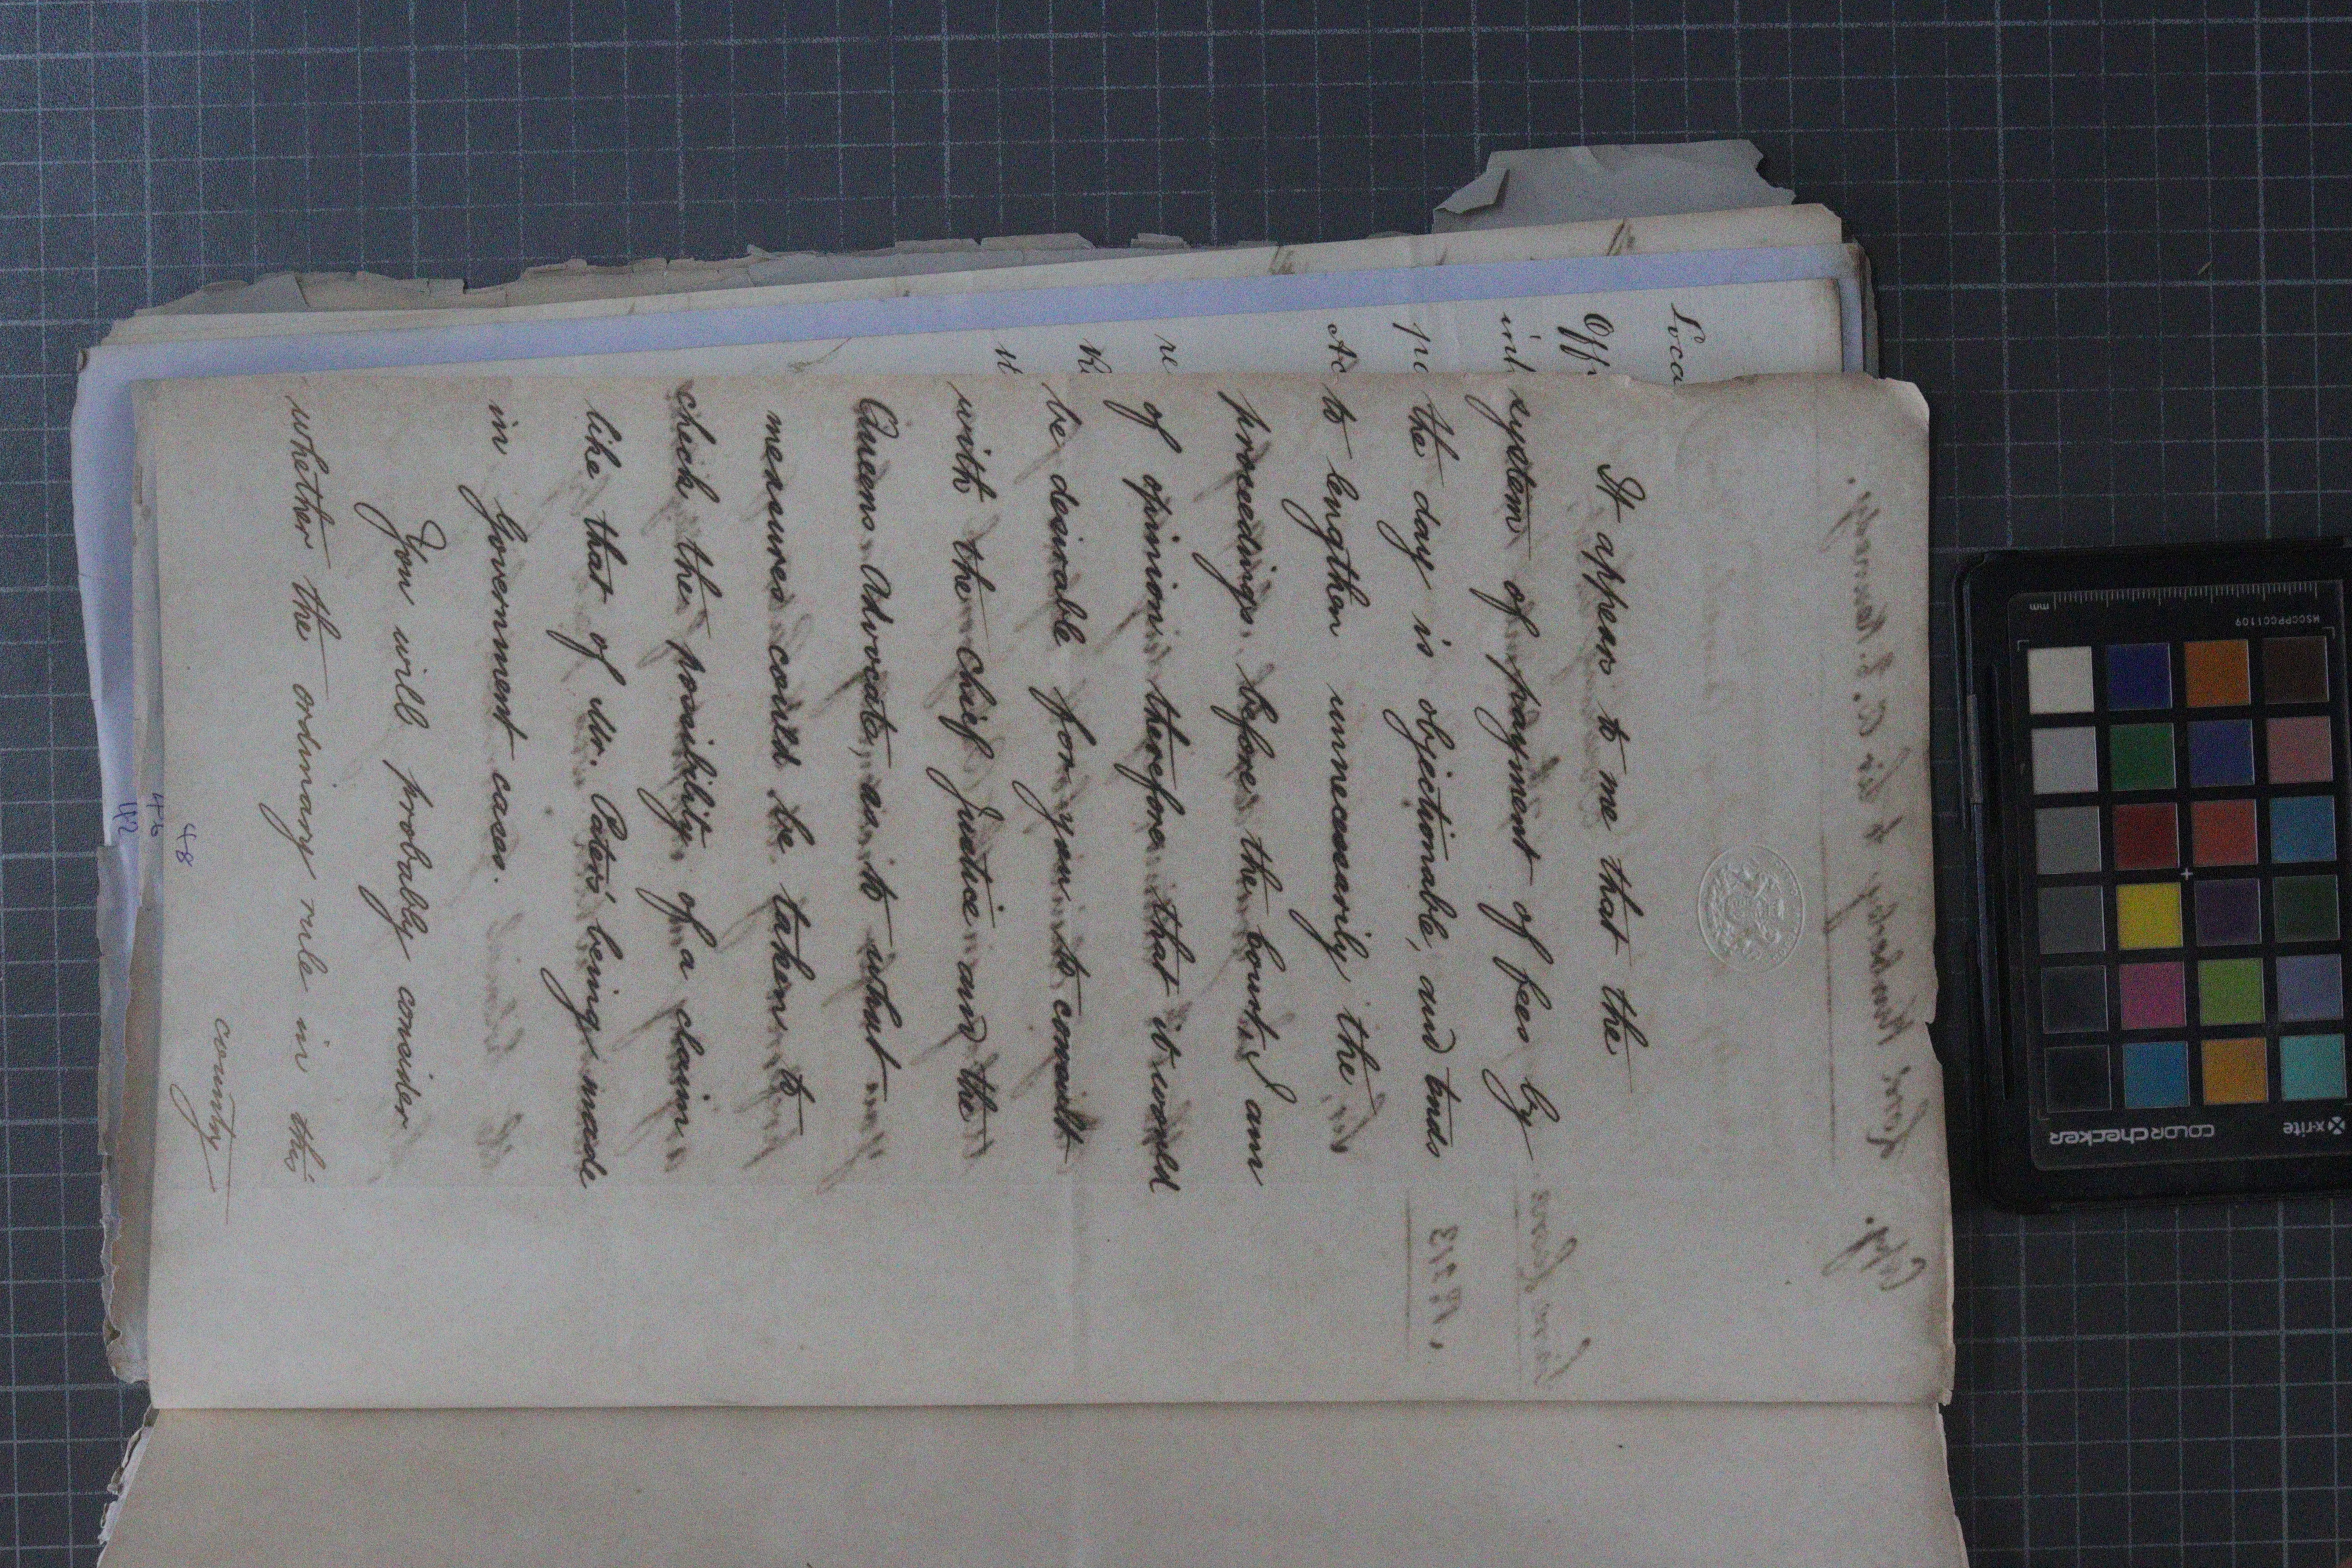 It appears to me that the
system of payment of fees by
the day is objectionable, and tends
to lengthen unnecessarily the
proceedings before the Court, I am
of opinion therefore that it would
be desirable for you to consult
with the Chief Justice and the
Queens Advocate, as to what
measures could be taken to
check the possibility of a claim
like that of Mr. Cator's being made
in Government cases.
You will probably consider
whether the ordinary rule in this
country
48
46
42
Loca
Off
int
pe
Ac
re
x-rite
colorchecker
MSCCPPCC1109
mm